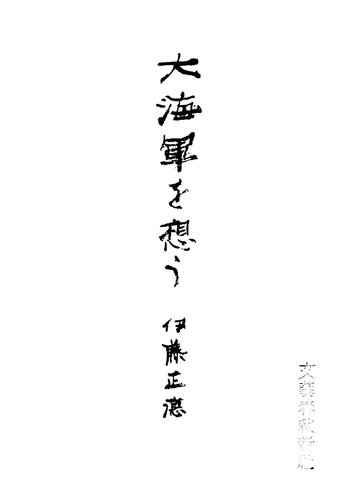 大海軍を想う
伊藤正徳
文藝春秋新社